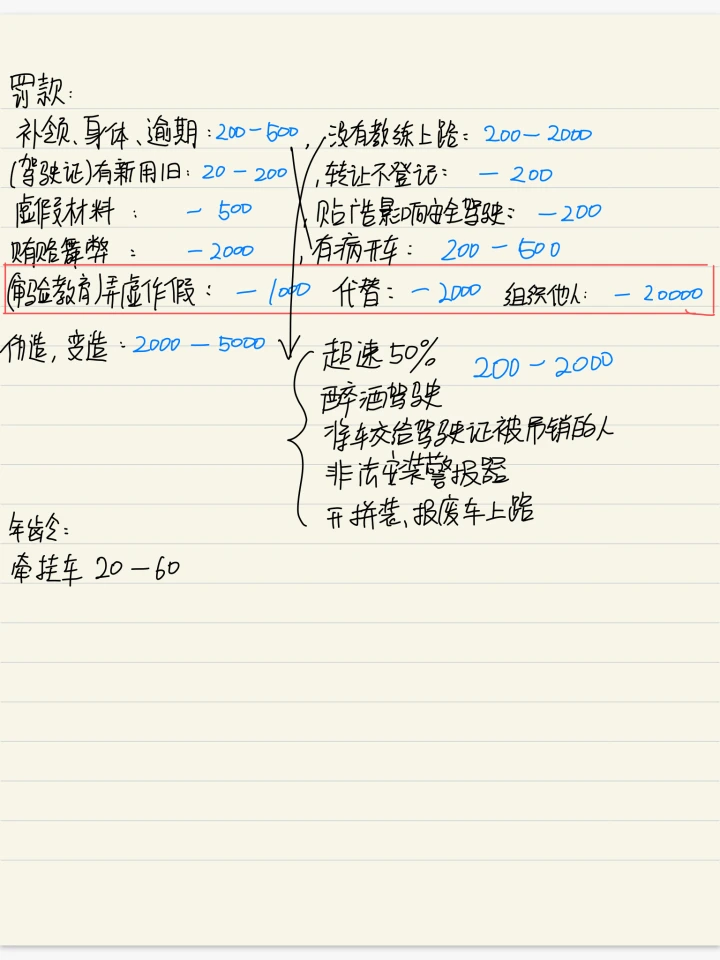 罚款:
补领、身体、逾期:200-500, 没有教练上路:200-2000
(驾驶证)有新用旧:20-200 , 转让不登记:-200
虚假材料:-500 , 贴广告影响安全驾驶:-200
贿赂舞弊:-2000 , 有病开车:200-500
(审验教育)弄虚作假:-1000 代替:-2000 组织他人:-20000
伪造,变造:2000-5000
超速50% 200-2000
醉酒驾驶
将车交给驾驶证被吊销的人
非法安装警报器
开拼装、报废车上路
年龄:
牵挂车 20-60